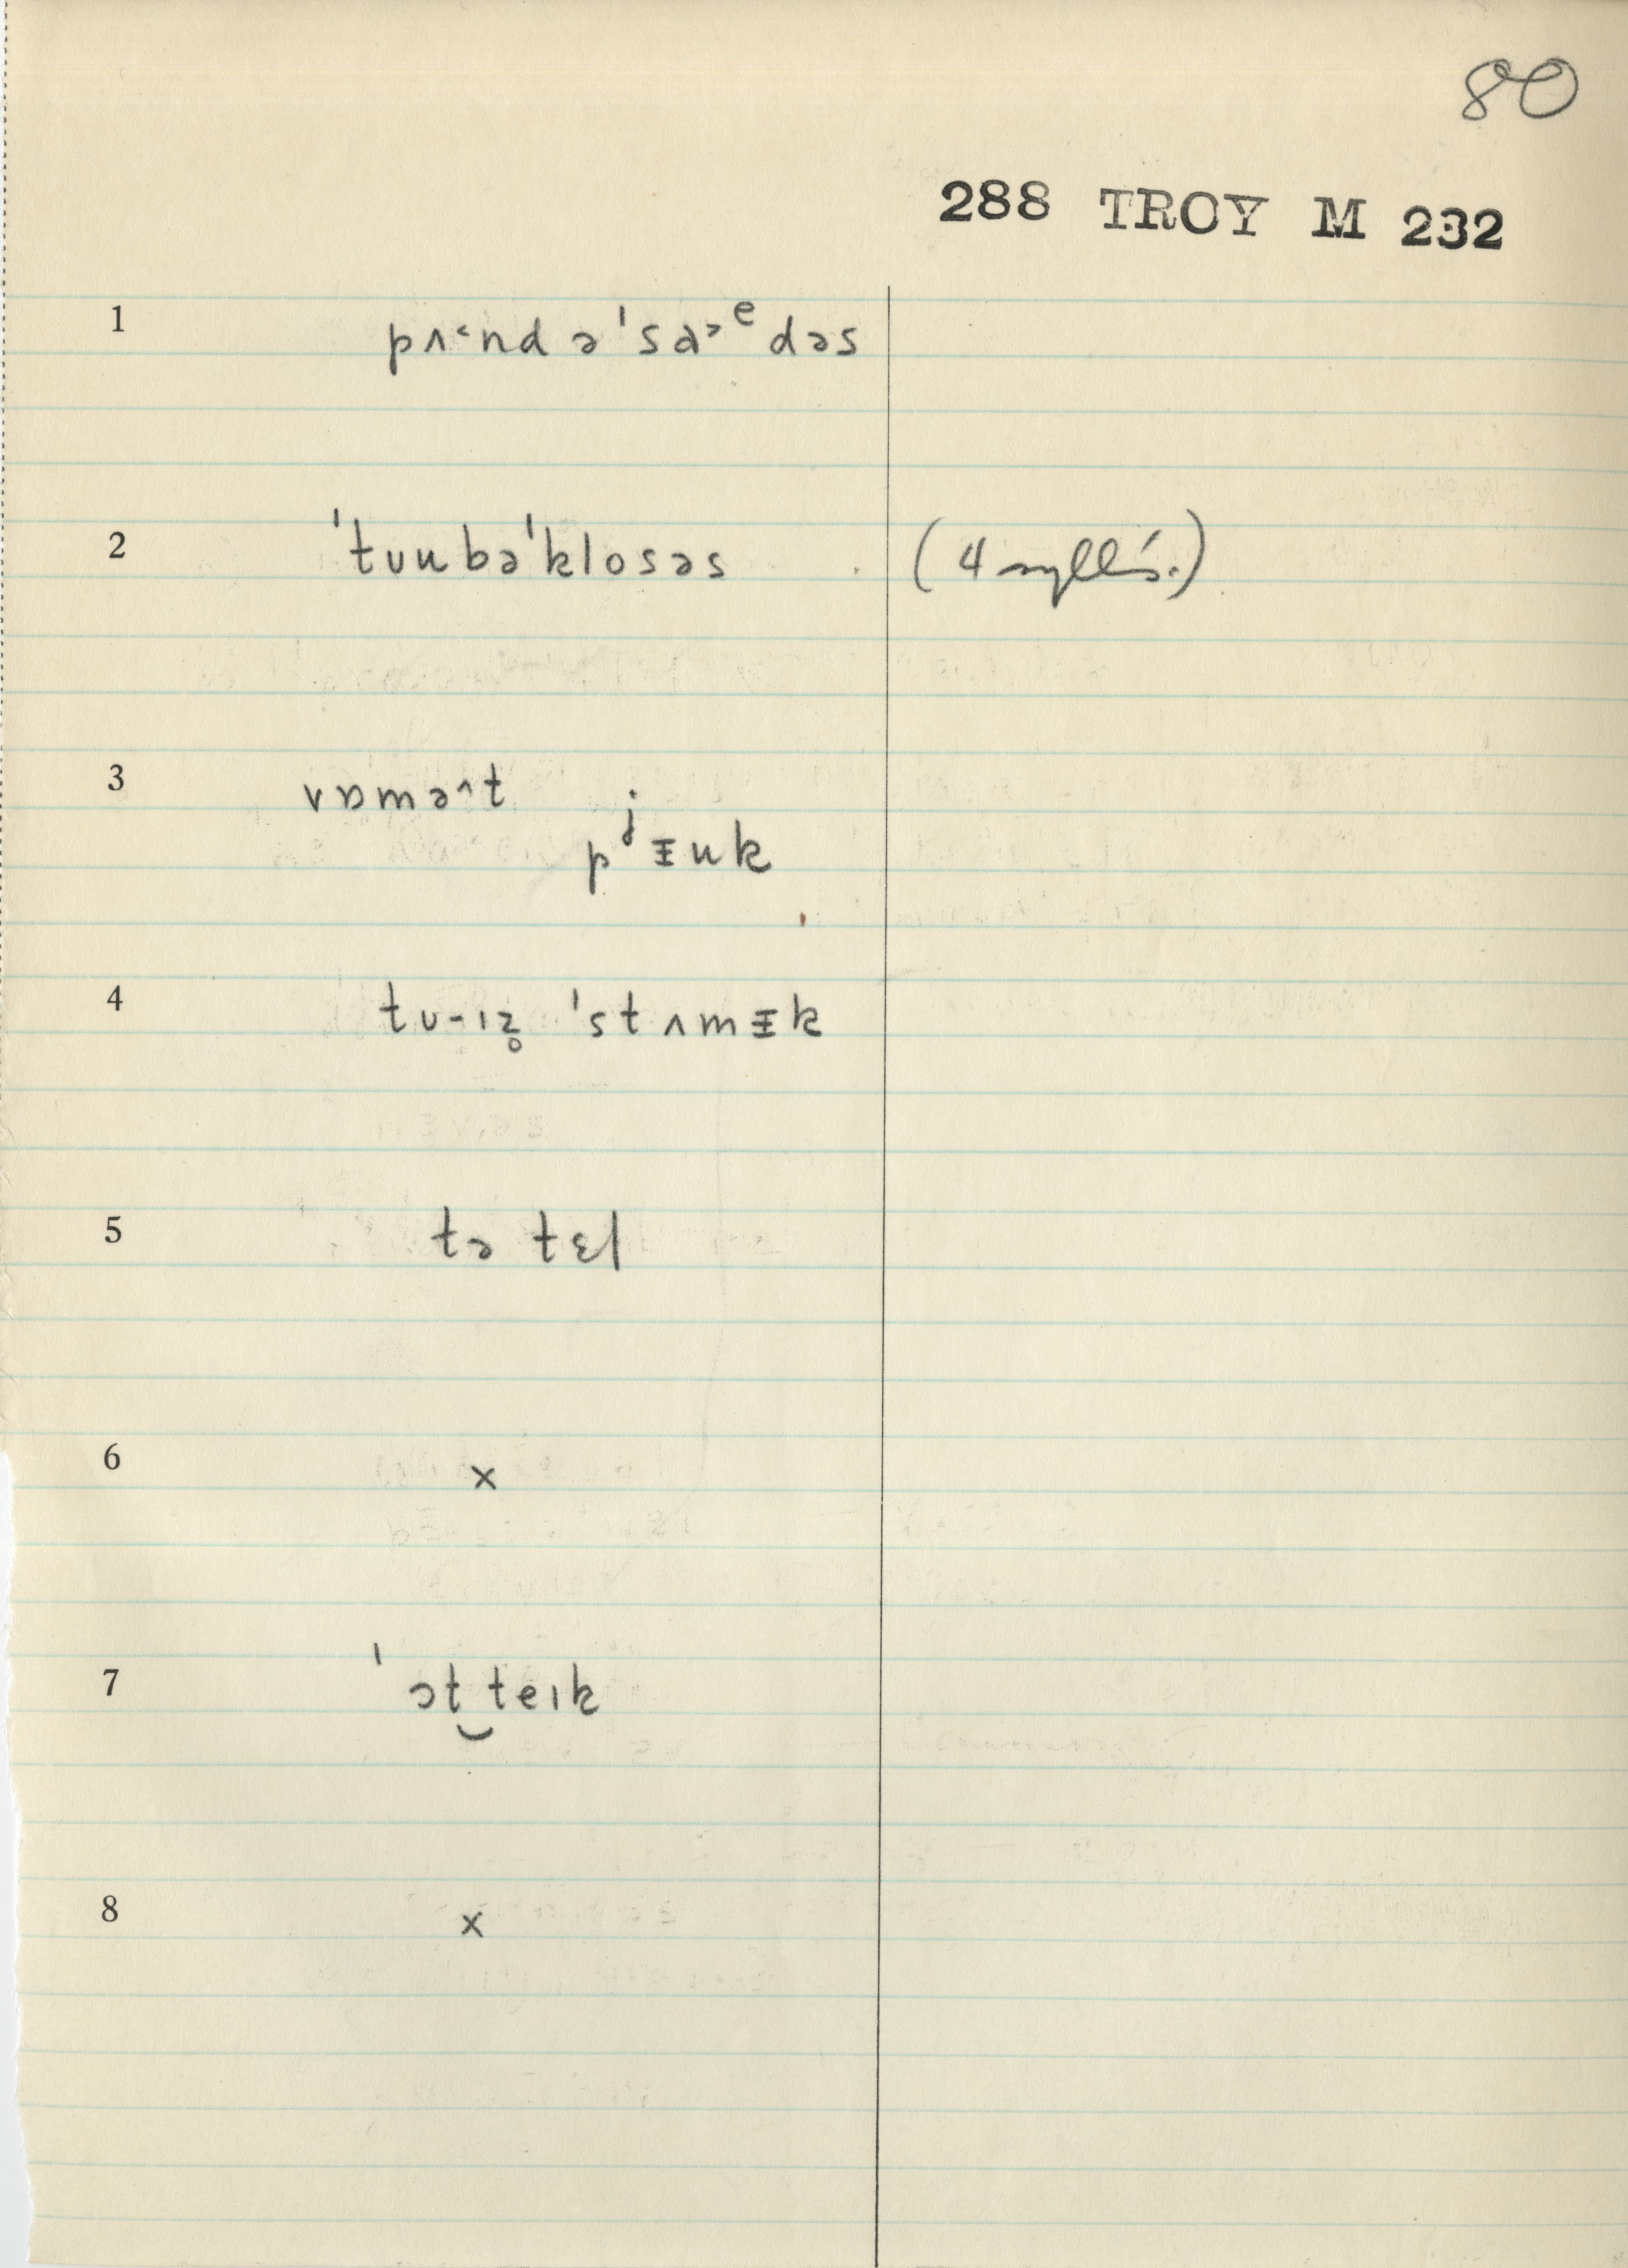 80
288 TROY M 232
1 pʌ˂nd ə ˈsɑ˃ᵉdəs
2 ˈtuubəˈklosəs (4 sylls.)
3 vɒmə^t
pʲᵻuk
4 tu-ɪz̥ ˈstʌmᵻk
5 tə tɛl
6 x
7 ˈɔt‿teɪk
8 x